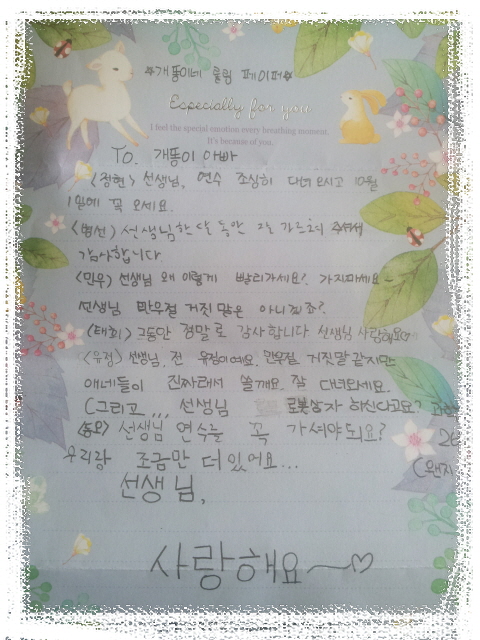 *개똥이네 롤링 페이퍼*
Especially for you
I feel the special emotion every breathing moment.
It's because of you.
To. 개똥이 아빠
<정현> 선생님, 연수 조심히 다녀오시고 10월
1일에 꼭 오세요.
<병선> 선생님 한 달 동안 잘 가르쳐 주셔서
감사합니다
<민우> 선생님 왜 이렇게 빨리가세요? 가지마세요~
선생님 만우절 거짓 말은 아니겠죠?
<태희> 그동안 정말로 감사합니다 선생님 사랑해요♡
<유정> 선생님, 전 유정이에요. 만우절 거짓말 같지만
애네들이 진짜래서 쓸게요. 잘 다녀오세요.
(그리고,,, 선생님 로봇상자 하신다고요?
선생님 연수를 꼭 가셔야되요?
우리랑 조금만 더 있어요...
선생님,
사랑해요~♡